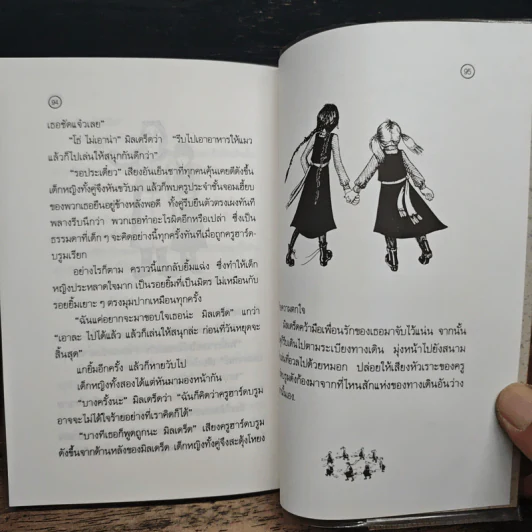 94
เธอชัดแจ๋วเลย"
"โธ่ ไม่เอาน่า" มิลเดร็ดว่า "รีบไปเอาอาหารให้แมว
แล้วก็ไปเล่นให้สนุกกันดีกว่า"
"รอประเดี๋ยว" เสียงอันเย็นชาที่ทุกคนคุ้นเคยดีดังขึ้น
เด็กหญิงทั้งคู่จึงหันขวับมา แล้วก็พบครูประจำชั้นจอมเฮี้ยบ
ของพวกเธอยืนอยู่ข้างหลังพอดี ทั้งคู่รีบยืนตัวตรงแผงทันที
พลางรีบนึกว่า พวกเธอทำอะไรผิดอีกหรือเปล่า ซึ่งเป็น
ธรรมดาที่เด็ก ๆ จะคิดอย่างนี้ทุกครั้งทันทีเมื่อถูกครูฮาร์ด-
บรูมเรียก
อย่างไรก็ตาม คราวนี้แกกลับยิ้มแฉ่ง ซึ่งทำให้เด็ก
หญิงประหลาดใจมาก เป็นรอยยิ้มที่เป็นมิตร ไม่เหมือนกับ
รอยยิ้มเยาะ ๆ ตรงมุมปากเหมือนทุกครั้ง
"ฉันแค่อยากจะมาขอบใจเธอน่ะ มิลเดร็ด" แกว่า
"เอาละ ไปได้แล้ว แล้วก็เล่นให้สนุกล่ะ ก่อนที่วันหยุดจะ
สิ้นสุด"
แกยิ้มอีกครั้ง แล้วก็หายวับไป
เด็กหญิงทั้งสองได้แต่หันมามองหน้ากัน
"บางครั้งนะ" มิลเดร็ดว่า "ฉันก็คิดว่าครูฮาร์ดบรูม
อาจจะไม่ได้ใจร้ายอย่างที่เราคิดก็ได้"
"บางทีเธอก็พูดถูกนะ มิลเดร็ด" เสียงครูฮาร์ดบรูม
ดังขึ้นจากด้านหลังของมิลเดร็ด เด็กหญิงทั้งคู่จึงสะดุ้งโหยง
95
ความตกใจ
มิลเดร็ดคว้ามือเพื่อนรักของเธอมาจับไว้แน่น จากนั้น
รีบเดินไปตามระเบียงทางเดิน มุ่งหน้าไปยังสนาม
ไปด้วยหมอก ปล่อยให้เสียงหัวเราะของครู
บรูมดังก้องมาจากที่ไหนสักแห่งของทางเดินอันว่าง
นั้นเอง